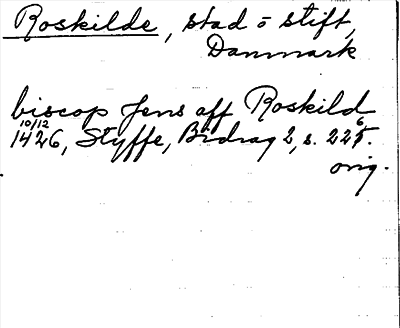 Roskilde, stad o stift,
Danmark
biscop Jens aff Roskild
10/12 1426, Styffe, Bidrag 2, s. 226.
orig.